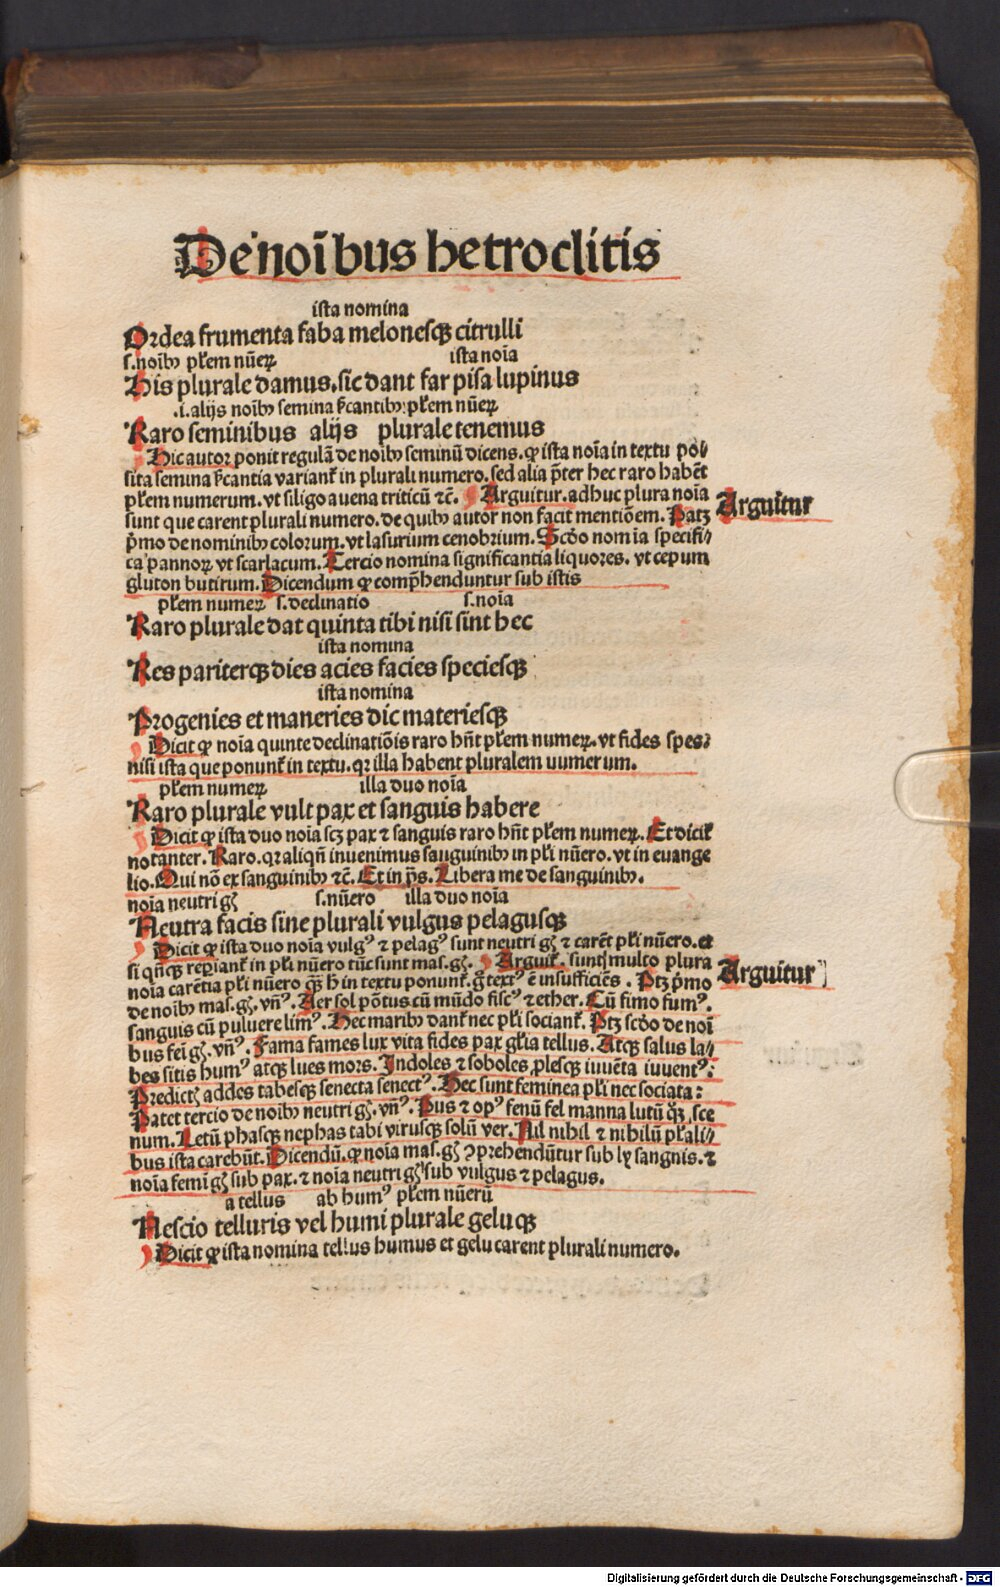 De noībus hetroclitis
ista nomina
Ordea frumenta faba melonesqꝫ citrulli
s.noībꝰ pƚem nūeꝝ ista noīa
His plurale damus.sic dant far pisa lupinus
.i.alijs noībꝰ semina ſcantibꝰ pƚem nūeꝝ
Raro seminibus alijs plurale tenemus
Hic autor ponit regulā de noībꝰ seminū dicens.ꝙ ista noīa in textu po⸗
sita semina ſcantia variant̃ in plurali numero.sed alia p̄ter hec raro habēt
pƚem numerum.vt siligo auena triticū ⁊c̄. Arguitur.adhuc plura noīa
Arguitur
sunt que carent plurali numero.de quibꝰ autor non facit mentiōem.Patꝫ
p̄mo de nominibꝰ colorum.vt lasurium cenobrium.Scd̄o nomīa specifi⸗
ca pannoꝝ vt scarlacum.Tercio nomina significantia liquores. vt cepum
gluton butirum.Dicendum ꝙ comp̄henduntur sub istis
pƚem numeꝝ s.declinatio s.noīa
Raro plurale dat quinta tibi nisi sint hec
ista nomina
Res pariterqꝫ dies acies facies speciesqꝫ
ista nomina
Progenies et maneries dic materiesqꝫ
Dicit ꝙ noīa quinte declinatiōis raro hn̄t pƚem numeꝝ.vt fides spes?
nisi ista que ponunt̃ in textu.qꝛ illa habent pluralem uumerum.
pƚem numeꝝ illa duo noīa
Raro plurale vult pax et sanguis habere
Dicit ꝙ ista duo noīa scꝫ pax ⁊ sanguis raro hn̄t pƚem numeꝝ.Et dicit̃
notanter.Raro.qꝛ aliqn̄ inuenimus sauguinibꝰ in pƚi nūero.vt in euange
lio.Qui nō ex sanguinibꝰ ⁊c̄.Et in p̄s.Libera me de sanguinibꝰ.
noīa neutri gꝫ s.nūero illa duo noīa
Neutra facis sine plurali vulgus pelagusqꝫ
Dicit ꝙ ista duo noīa vulgꝰ ⁊ pelagꝰ sunt neutri gꝫ ⁊ carēt pƚi nūero.et
si qn̄qꝫ reꝑiant̃ in pƚi nūero tūc sunt mas.gꝫ. Arguit̃. sunt multo plura
Arguitur
noīa carētia pƚi nūero qꝫ̄ h̄ in textu ponunt̃.g̊ textꝰ ē insufficiēs. Ptꝫ p̄mo
de noībꝰ mas.gꝫ.vn̄ꝰ.Aer sol pōtus cū mūdo fiscꝰ ⁊ ether. Cū fimo fumꝰ.
sanguis cū puluere limꝰ.Hec maribꝰ dant̃ nec pƚi sociant̃.Ptꝫ scd̄o de noī
bus feī gꝫ.vn̄ꝰ.Fama fames lux vita fides pax gƚia tellus.Atqꝫ salus la⸗
bes sitis humꝰ atqꝫ lues mors.Indoles ⁊ soboles ꝓlesqꝫ iuuēta iuuentꝰ:
Predictꝫ addes tabesqꝫ senecta senectꝰ.Hec sunt feminea pƚi nec sociata:
Patet tercio de noībꝰ neutri gꝫ.vn̄ꝰ.Pus ⁊ opꝰ fenū fel manna lutū qꝫ̄ sce
num.Letū phasqꝫ nephas tabi virusqꝫ solū ver.Nil nihil ⁊ nihilū pƚali⸗
bus ista carebūt.Dicendū.ꝙ noīa mas.gꝫ ꝯprehendūtur sub ly sangnis.⁊
noīa femī gꝫ sub pax.⁊ noīa neutri gꝫ sub vulgus ⁊ pelagus.
a tellus ab humꝰ pƚem nūerū
Nescio telluris vel humi plurale geluqꝫ
Dicit ꝙ ista nomina tellus humus et gelu carent plurali numero.
Digitalisierung gefördert durch die Deutsche Forschungsgemeinschaft - DFG